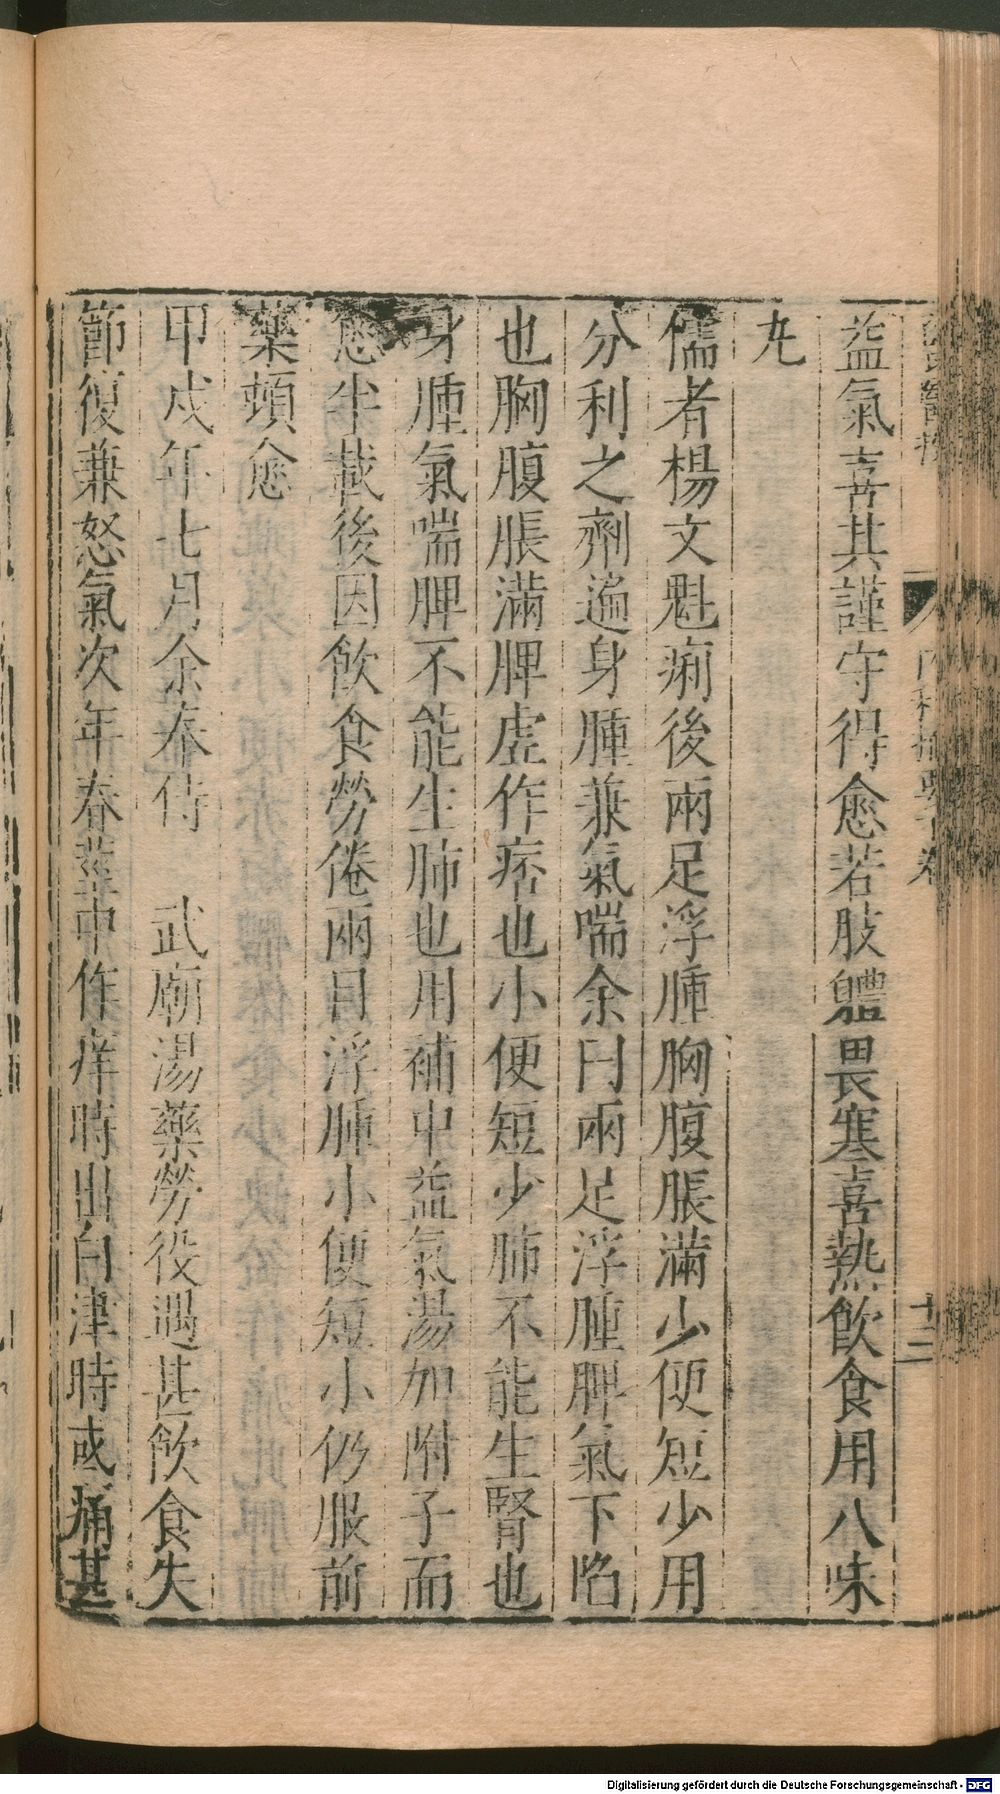 益氣喜其謹守得愈若肢軆畏寒喜熱飲食用八味
丸
儒者楊文魁痢後兩足浮腫胸腹脹滿少便短少用
分利之劑遍身腫兼氣喘余曰兩足浮腫脾氣下陷
也胸腹脹滿脾虛作痞也小便短少肺不能生腎也
身腫氣喘脾不能生肺也用補中益氣湯加附子而
愈半載後因飲食勞倦兩目浮腫小便短小仍服前
藥頓愈
甲戌年七月余奉侍 武廟湯藥勞役過甚飲食失
節復兼怒氣次年春莖中作痒時出白津時或痛甚
內科摘要下卷
十二
Digitalisierung gefördert durch die Deutsche Forschungsgemeinschaft - DFG